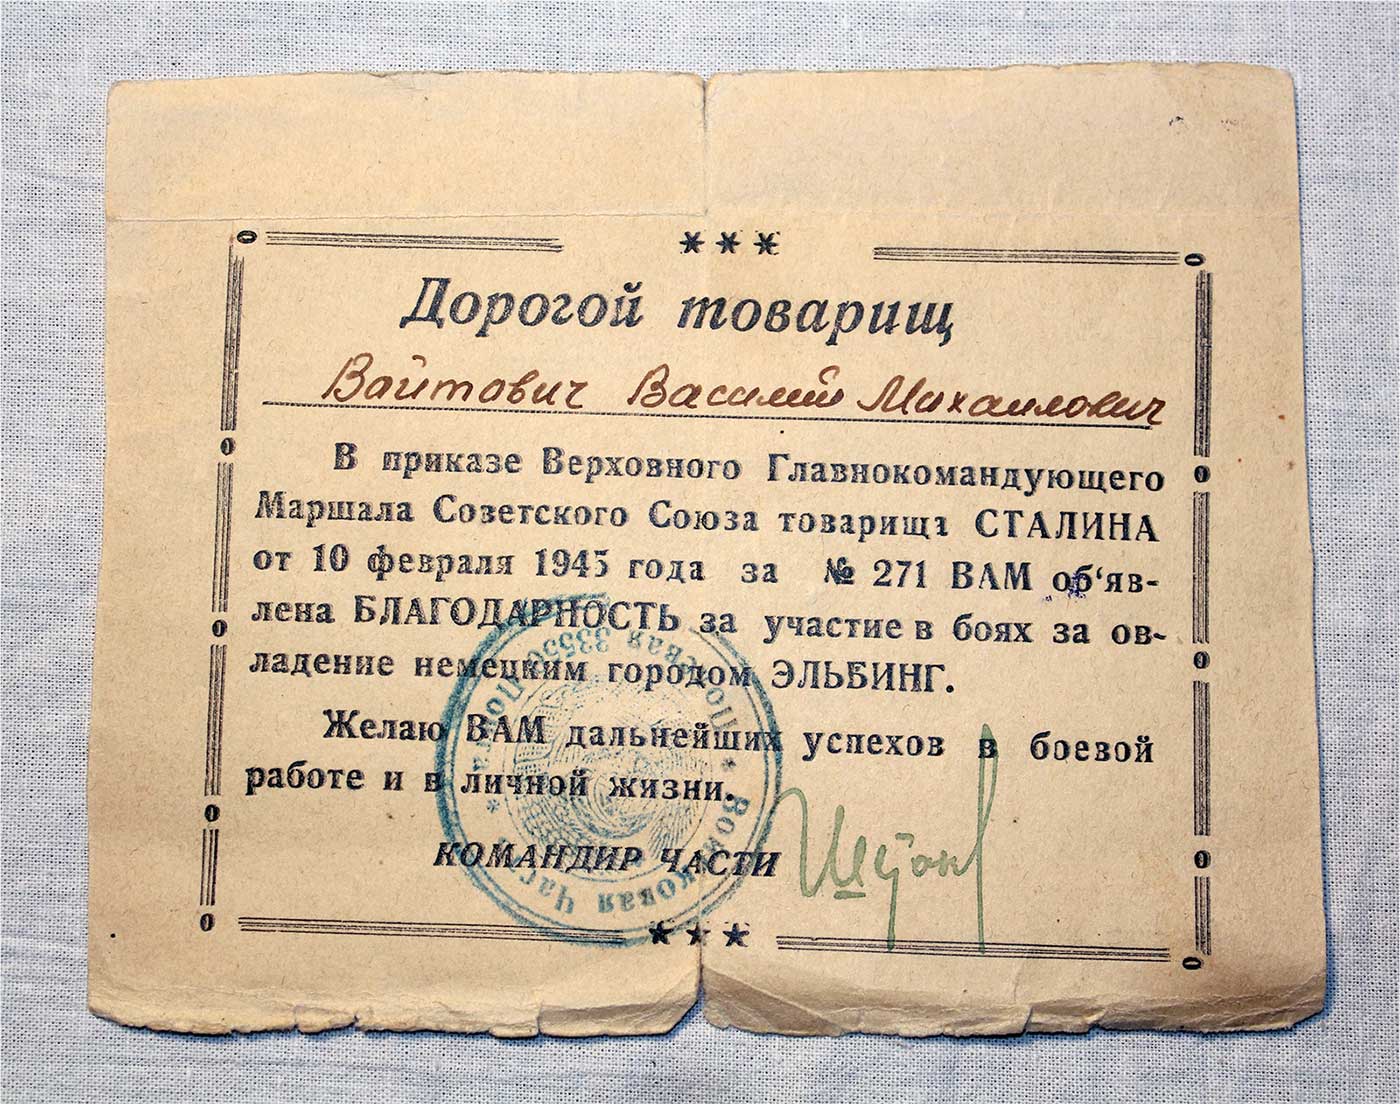 * * *
Дорогой товарищ
Вайтович Василий Михайлович
В приказе Верховного Главнокомандующего
Маршала Советского Союза товарища СТАЛИНА
от 10 февраля 1945 года за № 271 ВАМ об‘яв-
лена БЛАГОДАРНОСТЬ за участие в боях за ов-
ладение немецким городом ЭЛЬБИНГ.
Желаю ВАМ дальнейших успехов в боевой
работе и в личной жизни.
КОМАНДИР ЧАСТИ
* Войсковая Часть * Полевая
* * *